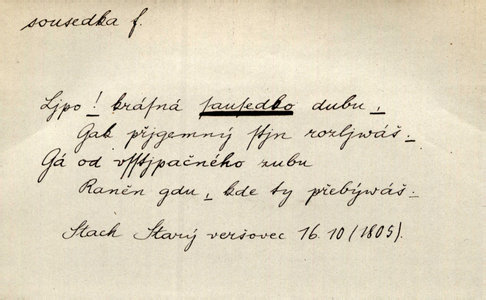 sousedka f.
Ljpo! kráſná ſauſedko dubu,
Gak přjgemný ſtjn rozljwáš.
Gá od vſſtjpačného zubu
Raněn gdu, kde ty přebýwáš.
Stach Starý veršovec 16. 10 (1805).